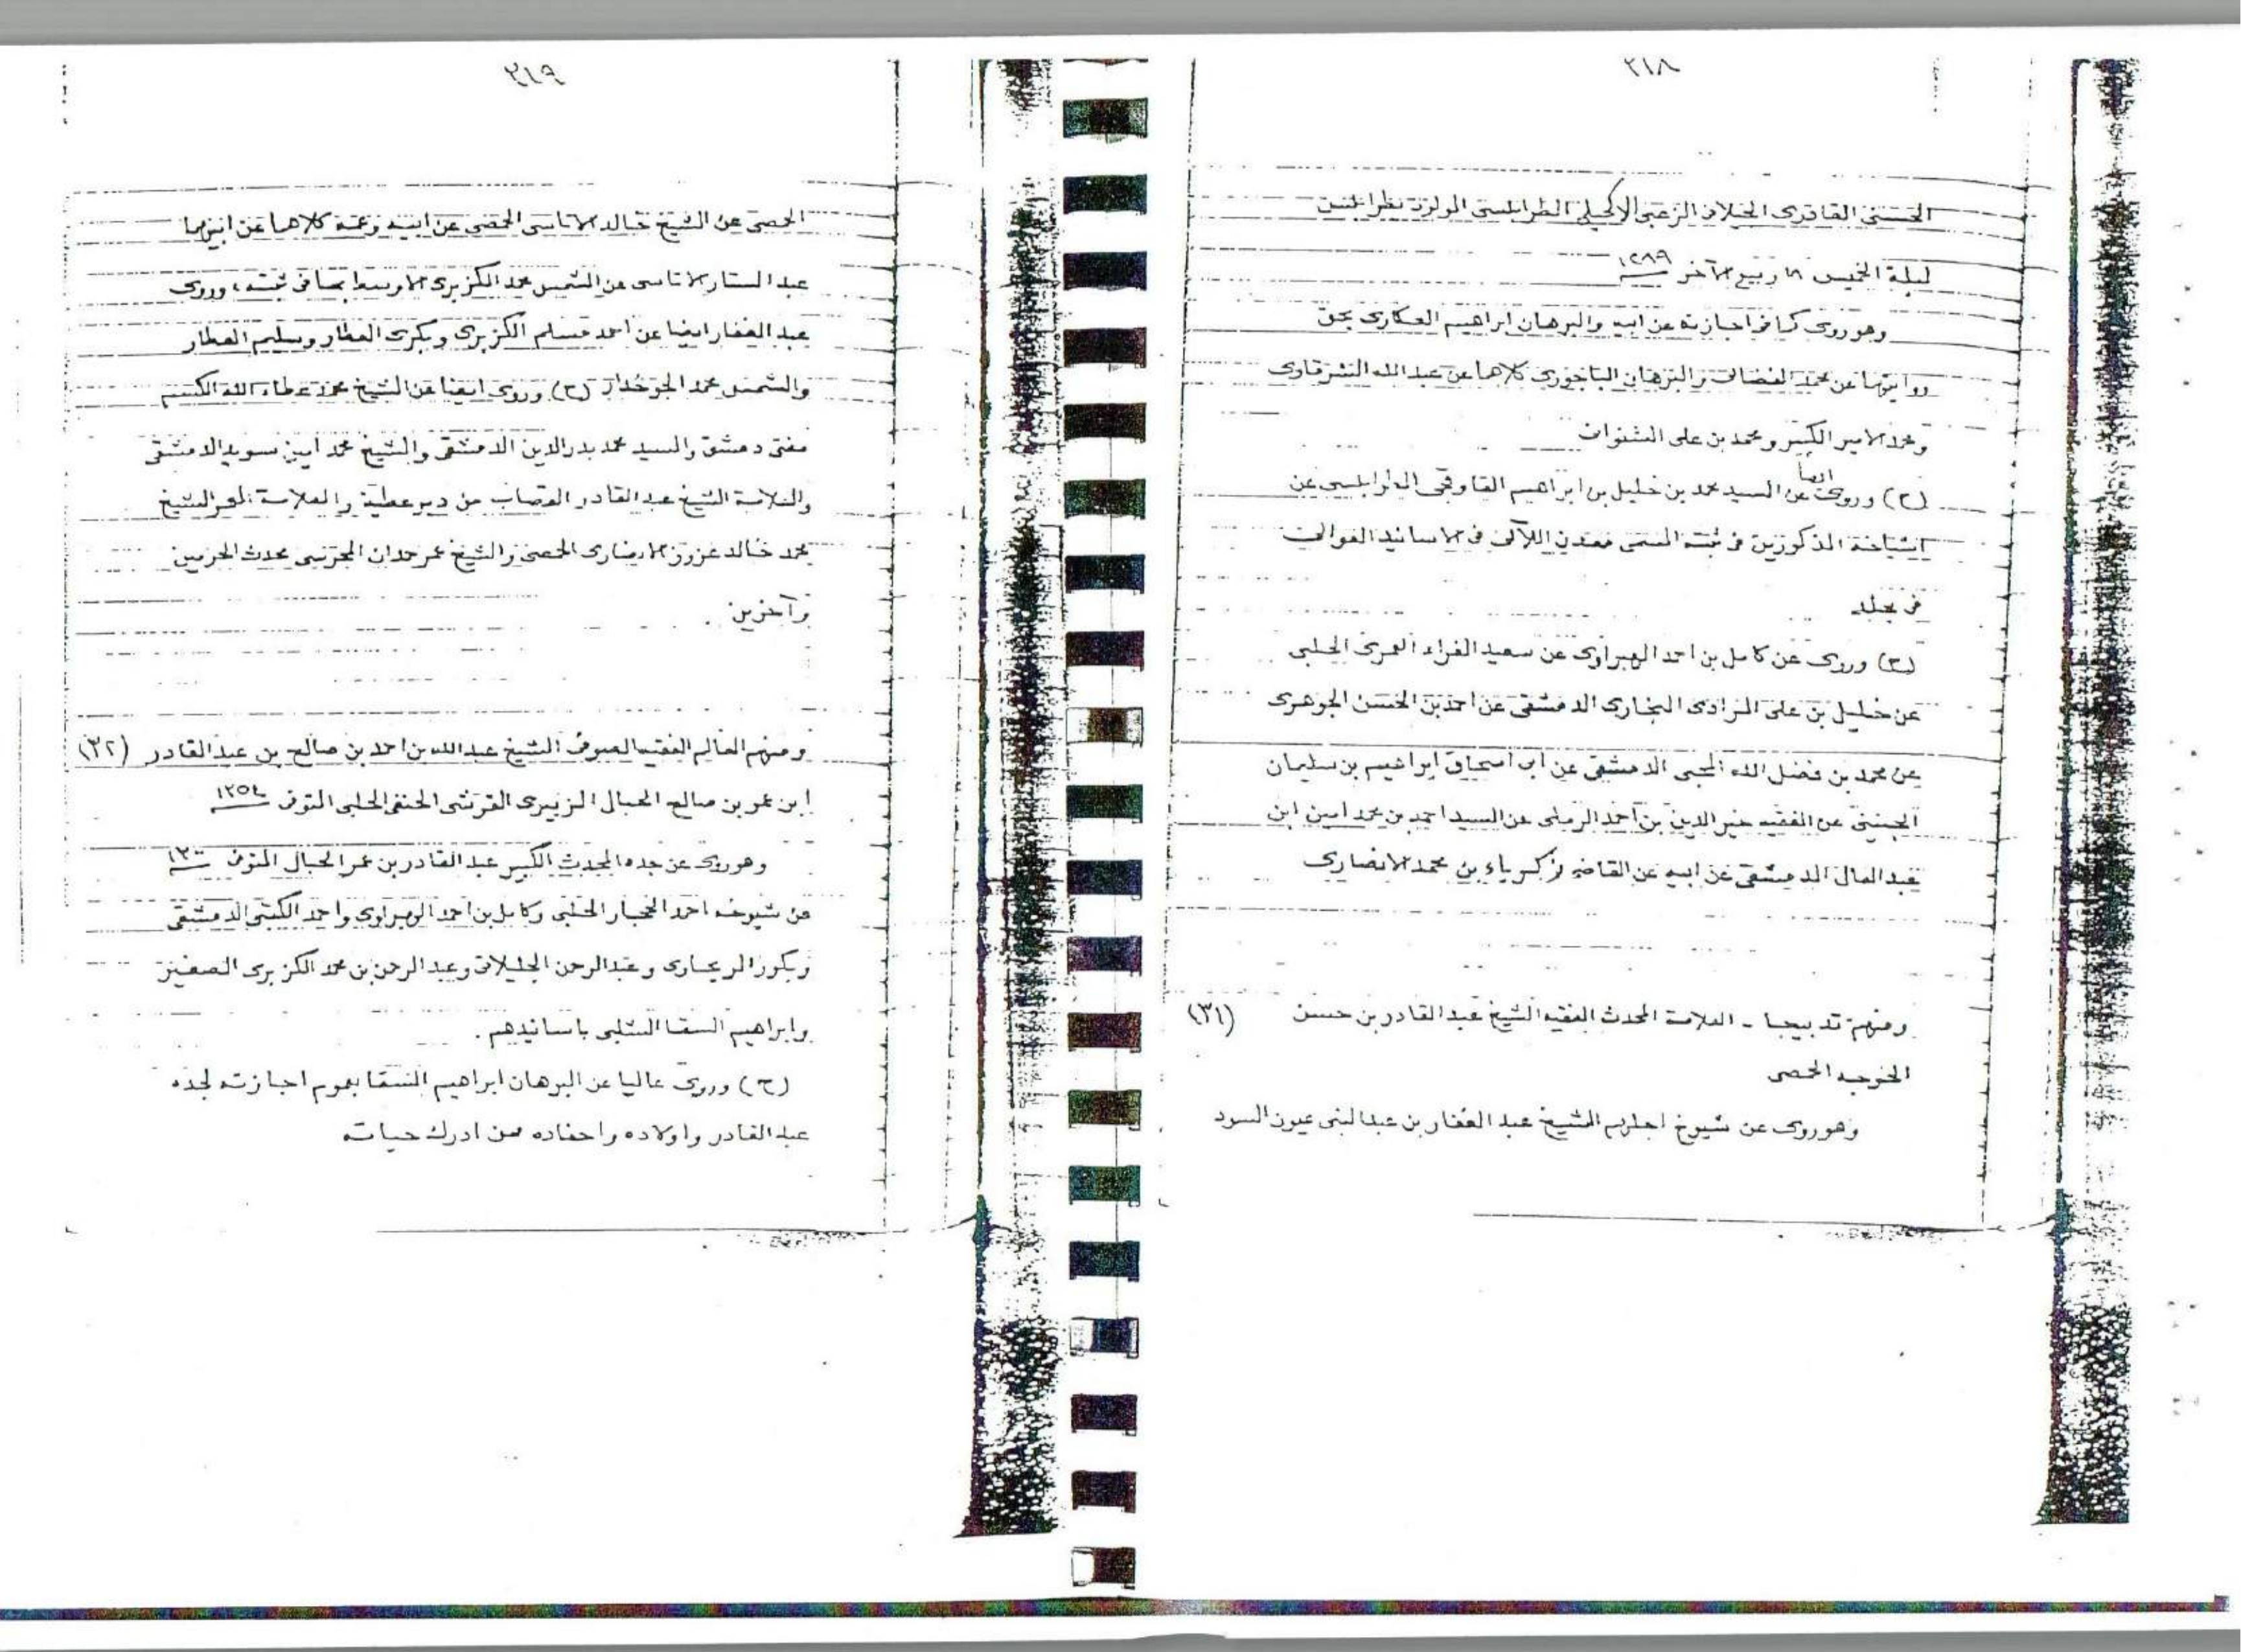 ٣١٨
الحسنى القادرى الجيلانى الزعبى الاكحلى الطرابلسى المولود بطرابلس
ليلة الخميس ١٨ ربيع الآخر ١٢٨٩
وهو روى كما فى اجازته عن ابيه والبرهان ابراهيم العكارى بحق
روايتهما عن محمد الفضالى والبرهان الباجورى كلاهما عن عبد الله الشرقاوى
ومحمد الامير الكبير ومحمد بن على الشنوانى
(ح) وروى ايضا عن السيد محمد بن خليل بن ابراهيم القاوقجى الطرابلسى عن
اشياخه المذكورين فى ثبته المسمى معدن اللآلى فى الاسانيد العوالى
فى مجلد
(ح) وروى عن كامل بن احمد الهبراوى عن سعيد الفراء العمرى الحلبى
عن خليل بن على المرادى البخارى الدمشقى عن احمد بن الحسن الجوهرى
عن محمد بن فضل الله المحبى الدمشقى عن ابى اسحاق ابراهيم بن سليمان
الجينينى عن الفقيه خير الدين بن احمد الرملى عن السيد احمد بن محمد امين ابن
عبد العال الدمشقى عن ابيه عن القاضى زكرياء بن محمد الانصارى
ومنهم تدبيجا - العلامة المحدث الفقيه الشيخ عبد القادر بن حسن (٣١)
الخوجه الحمصى
وهو روى عن شيوخ اجلهم الشيخ عبد الغفار بن عبد النبى عيون السود
٣١٩
الحمصى عن الشيخ خالد الاتاسى الحمصى عن ابيه وعمه كلاهما عن ابيهما
عبد الستار الاتاسى عن الشمس محمد الكزبرى الاوسط بما فى ثبته، وروى
عبد الغفار ايضا عن احمد مسلم الكزبرى وبكرى العطار وسليم العطار
والشمس محمد الجوخدار (ح) وروى ايضا عن الشيخ محمد عطاء الله الكسم
مفتى دمشق والسيد محمد بدر الدين الدمشقى والشيخ محمد امين سويد الدمشقى
والعلامة الشيخ عبد القادر القصاب من دير عطية والعلامة المعمر الشيخ
محمد خالد عزوز الانصارى الحمصى والشيخ عمر حمدان المحرسى محدث الحرمين
وآخرين.
ومنهم العالم الفقيه الصوفى الشيخ عبد الله بن احمد بن صالح بن عبد القادر (٣٢)
ابن عمر بن صالح الحبال الزبيرى القرشى الحنفى الحلبى المتوفى ١٣٥٤
وهو روى عن جده المحدث الكبير عبد القادر بن عمر الحبال المتوفى ١٣٠٠
عن شيوخه احمد الحجار الحلبى وكامل بن احمد الهبراوى واحمد الكتبى الدمشقى
وبكور الريحاوى وعبد الرحمن الجليلاتى وعبد الرحمن بن محمد الكزبرى الصغير
وابراهيم السقا الشلبى باسانيدهم.
(ح) وروى عاليا عن البرهان ابراهيم السقا بعموم اجازته لجده
عبد القادر واولاده واحفاده ممن ادرك حياته